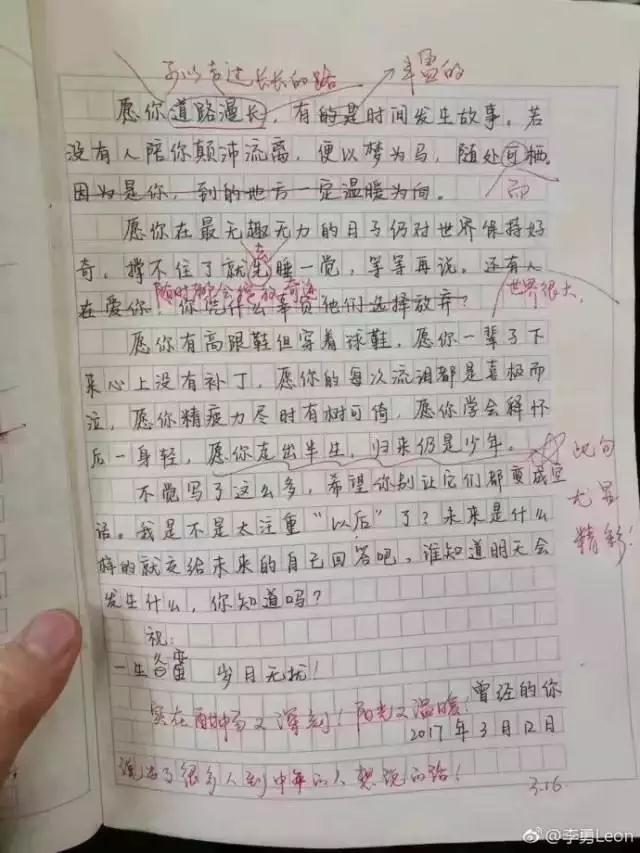 可以走过长长的路 丰富的
愿你道路漫长，有的是时间发生故事。若
没有人陪你颠沛流离，便以梦为马，随处可栖。
因为是你，到的地方一定温暖为向。 而
愿你在最无趣无力的日子仍对世界保持好
奇，撑不住了就先睡一觉，等等再说。还有人 去
在爱你！你凭什么辜负他们选择放弃？ 随时都会 奇迹 世界很大，
愿你有高跟鞋但穿着球鞋，愿你一辈子下
来心上没有补丁，愿你的每次流泪都是喜极而
泣，愿你精疲力尽时有树可倚，愿你学会释怀
后一身轻，愿你走出半生，归来仍是少年。 此句
不觉写了这么多，希望你别让它们都变成空 尤显
话。我是不是太注重“以后”了？未来是什么 精彩！
样的就交给未来的自己回答吧，谁知道明天会
发生什么，你知道吗？
祝：
一生 岁月无扰！
曾经的你
实在 又深刻！阳光又温暖！
2017年3月12日
说出了很多人到中年的人想说的话！
3.16
@李勇Leon